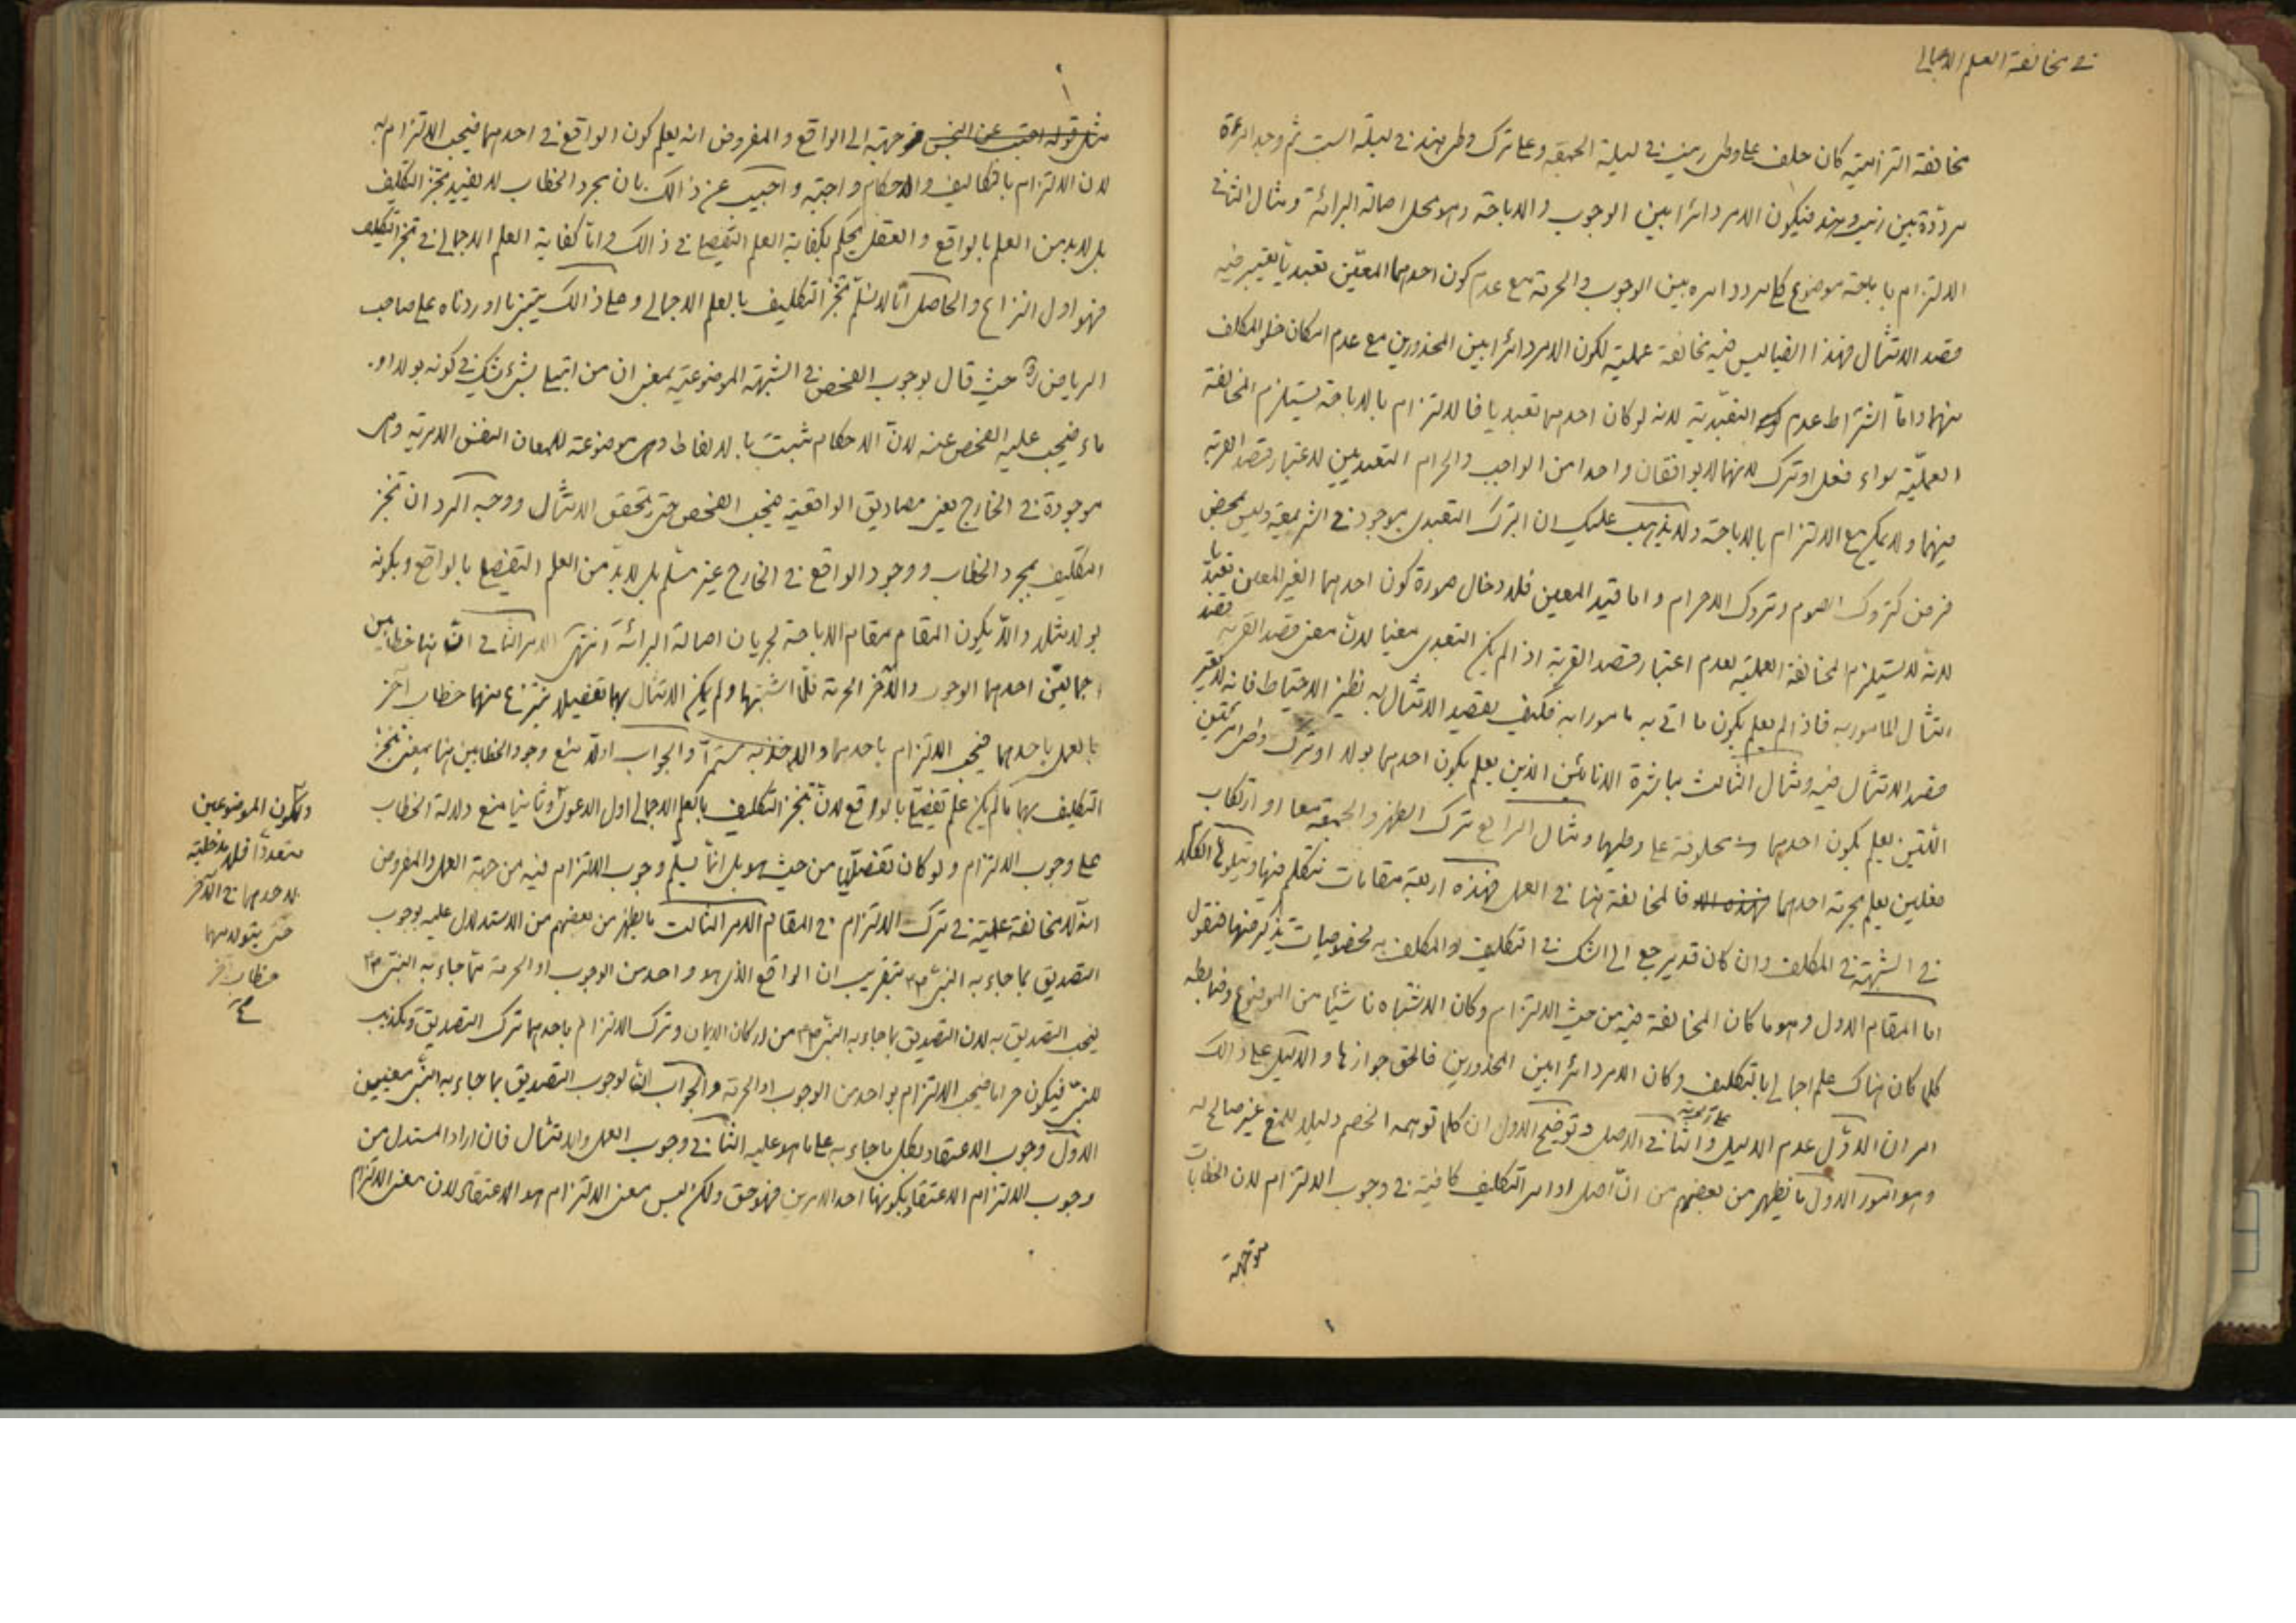 في مخالفة العلم الاجمالي
مخالفة التزامية كان حلف على وطى زينب في ليلة الجمعة وعلى ترك وطى هند في ليلة السبت ثم وجد امرءة
مرددة بين زينب وهند فيكون الامر دائرا بين الوجوب والاباحة وهو محل اصالة البرائة ومثال الثاني
الالتزام باباحة موضوع كلى مردد امره بين الوجوب والحرمة مع عدم كون احدهما المعين تعبديا يعتبر فيه
قصد الامتثال فهذا ايضا ليس فيه مخالفة عملية لكون الامر دائرا بين المحذورين مع عدم امكان خلو المكلف
منهما واما اشتراط عدم التعبدية لانه لو كان احدهما تعبديا فالالتزام بالاباحة يستلزم المخالفة
العملية سواء فعل او ترك لانهما لا يوافقان واحدا من الواجب والحرام التعبديين لاعتبار قصد القربة
فيهما ولا يمكن مع الالتزام بالاباحة ولا يذهب عليك ان الترك التعبدى موجود في الشريعة وليس بمحض
فرض كتروك الصوم وتروك الاحرام واما قيد المعين فلادخال صورة كون احدهما الغير المعين تعبديا
لانه لا يستلزم المخالفة العملية لعدم اعتبار قصد القربة اذا لم يكن التعبدى معينا لان معنى قصد القربة قصد
امتثال المامور به فاذا لم يعلم بكون ما اتى به مامورا به فكيف يقصد الامتثال به نظير الاحتياط فانه لا يعتبر
قصد الامتثال فيه ومثال الثالث مباشرة الانائين الذين يعلم بكون احدهما بولا او ترك وطى امرئتين
اللتين يعلم بكون احدهما محلوفة على وطيها ومثال الرابع ترك الظهر والجمعة معا او ارتكاب
فعلين يعلم بحرمة احدهما فالمخالفة هنا في العمل فهذه اربعة مقامات نتكلم فيها ويتلوها الكلام
في الشبهة في المكلف وان كان قد يرجع الى الشك في التكليف او المكلف به لخصوصيات تذكر فيها فنقول
اما المقام الاول وهو ما كان المخالفة فيه من حيث الالتزام وكان الاشتباه ناشيا من الموضوع وضابطه
كلما كان هناك علم اجمالي بالتكليف وكان الامر دائرا بين المحذورين فالحق جوازها والدليل على ذالك
امران الاول عدم الدليل على حرمته والثاني الاصل وتوضيح الاول ان كلما توهمه الخصم دليلا للمنع غير صالح له
وهو امور الاول ما يظهر من بعضهم من ان اصل اوامر التكليف كافية في وجوب الالتزام لان الخطابات
متوجهة
مثل قوله اجتنب عن النجس متوجهة الى الواقع والمفروض انه يعلم كون الواقع في احدهما فيجب الالتزام به
لان الالتزام بالتكاليف والاحكام واجبة واجيب عن ذالك بان مجرد الخطاب لا يفيد تنجز التكليف
بل لابد من العلم بالواقع والعقل يحكم بكفاية العلم التفصيلي في ذالك واما كفاية العلم الاجمالي في تنجز التكليف
فهو اول النزاع والحاصل انا لا نسلم تنجز التكليف بالعلم الاجمالي وعلى ذالك يبتنى ما اوردناه على صاحب
الرياض ره حيث قال بوجوب الفحص في الشبهة الموضوعية بمعنى ان من ابتلى بشىء يشك في كونه بولا او
ماء فيجب عليه الفحص عنه لان الاحكام ثبتت بالالفاظ وهى موضوعة للمعان النفس الامرية وهى
موجودة في الخارج يعنى مصاديق الواقعية فيجب الفحص حتى يتحقق الامتثال ووجه الرد ان تنجز
التكليف بمجرد الخطاب ووجود الواقع في الخارج غير مسلم بل لابد من العلم التفصيلي بالواقع وبكونه
بولا مثلا والا يكون المقام مقام الاباحة لجريان اصالة البرائة انتهى الامر الثاني ان هنا خطابين
اجماليين احدهما الوجوب والاخر الحرمة فلما اشتبها ولم يمكن الامتثال بهما تفصيلا ينتزع منهما خطاب آخر
بالعمل باحدهما فيجب الالتزام باحدهما والاخذ به مستمرا والجواب اولا منع وجود الخطابين هنا بمعنى تنجز
التكليف بهما ما لم يكن علم تفصيلي بالواقع لان تنجز التكليف بالعلم الاجمالي اول الدعوى وثانيا منع دلالة الخطاب
على وجوب الالتزام ولو كان تفصيليا من حيث هو بل انما يسلم وجوب الالتزام فيه من جهة العمل والمفروض
انه لا مخالفة عملية في ترك الالتزام في المقام الامر الثالث ما يظهر من بعضهم من الاستدلال عليه بوجوب
التصديق بما جاء به النبى ص بتقريب ان الواقع الذى هو واحد من الوجوب او الحرمة مما جاء به النبى ص
فيجب التصديق به لان التصديق بما جاء به النبى ص من اركان الايمان وترك الالتزام باحدهما ترك التصديق وتكذيب
للنبى فيكون حراما فيجب الالتزام بواحد من الوجوب او الحرمة والجواب ان لوجوب التصديق بما جاء به النبى معنيين
الاول وجوب الاعتقاد بكل ما جاء به على ما هو عليه الثاني وجوب العمل والامتثال فان اراد المستدل من
وجوب الالتزام الاعتقاد بكونها احد الامرين فهو حق ولكن ليس معنى الالتزام هو الاعتقاد لان معنى الالتزام
ولكون الموضوعين
متعددا فلا مدخلية
لاحدهما في الآخر
حتى يتولد منهما
خطاب آخر